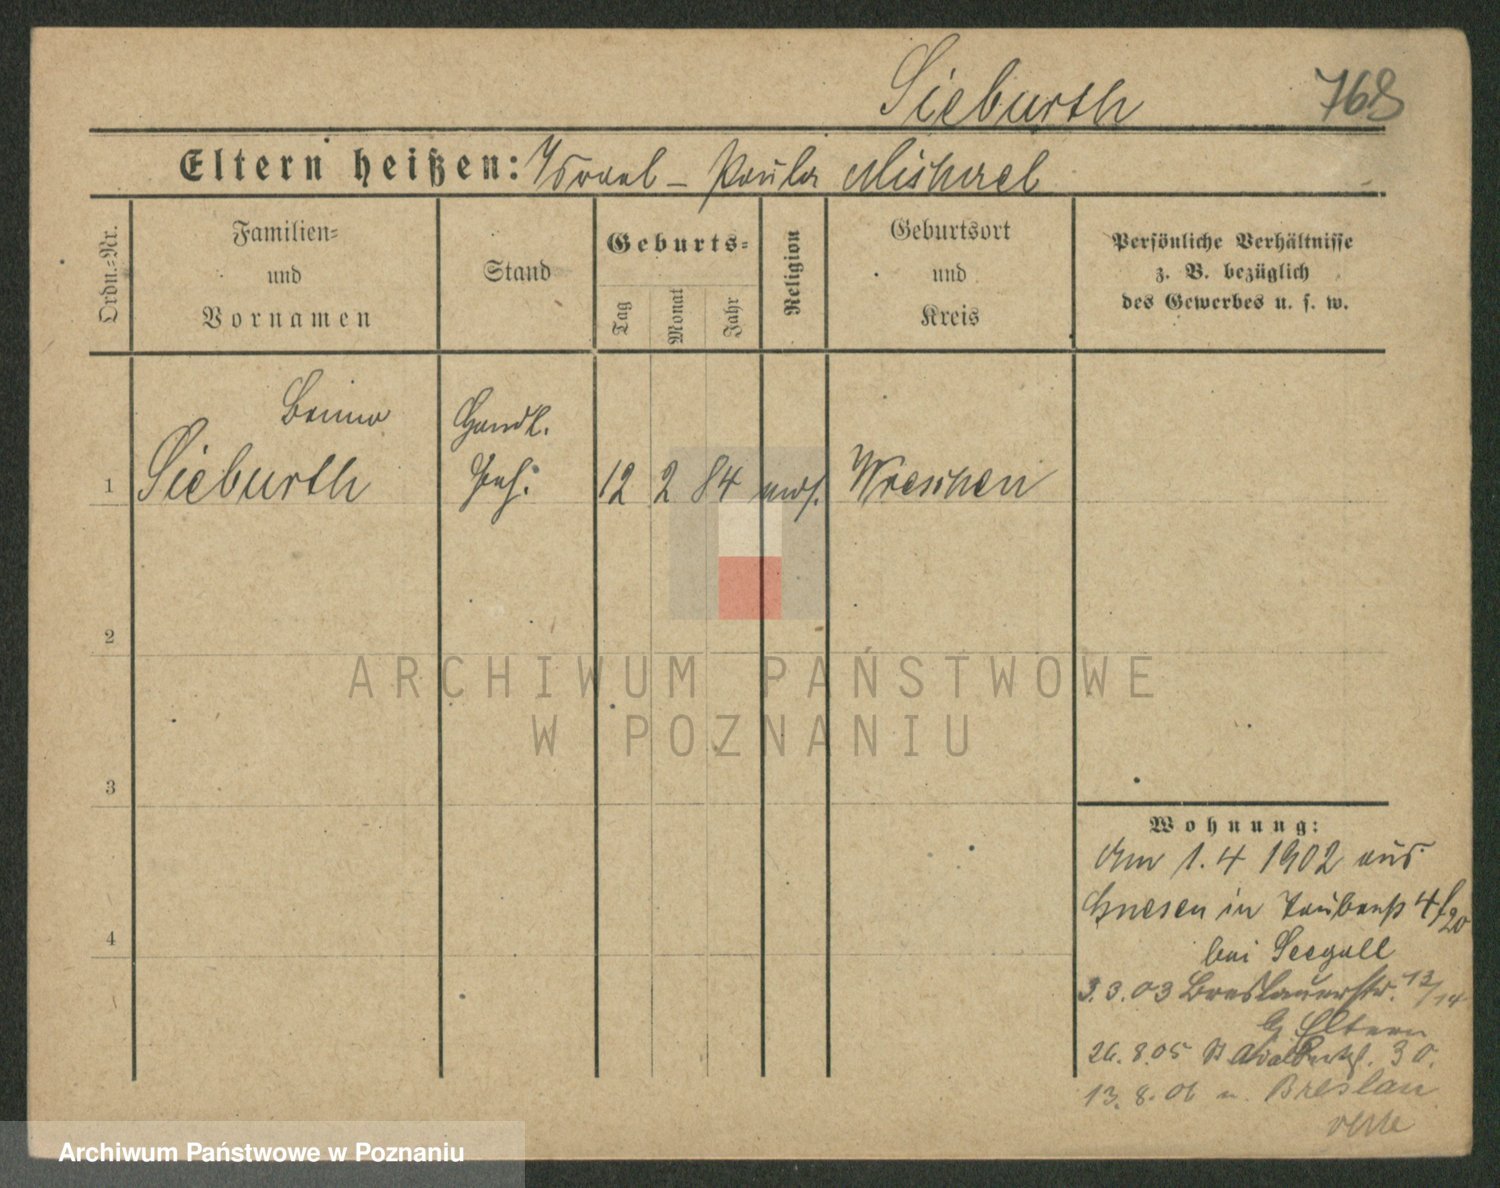 Sieburth 768
Eltern heißen: Israel – Paula Michael
Ordn.=Nr.
Familien=
und
Vornamen
Stand
Geburts=
Tag
Monat
Jahr
Religion
Geburtsort
und
Kreis
Persönliche Verhältnisse
z. B. bezüglich
des Gewerbes u. s. w.
1 Benno
Sieburth
Handl.
12 2 84 mos. Wreschen
2
3
4
ARCHIWUM PAŃSTWOWE
W POZNANIU
Wohnung:
Am 1. 4 1902 aus
Gnesen in Taubenstr 4/20
bei Seegall
3. 3. 03 Breslauerstr. 13/14
b/ Eltern
26. 8. 05 St Adalbertstr. 30.
13. 8. 06 n. Breslau
Archiwum Państwowe w Poznaniu